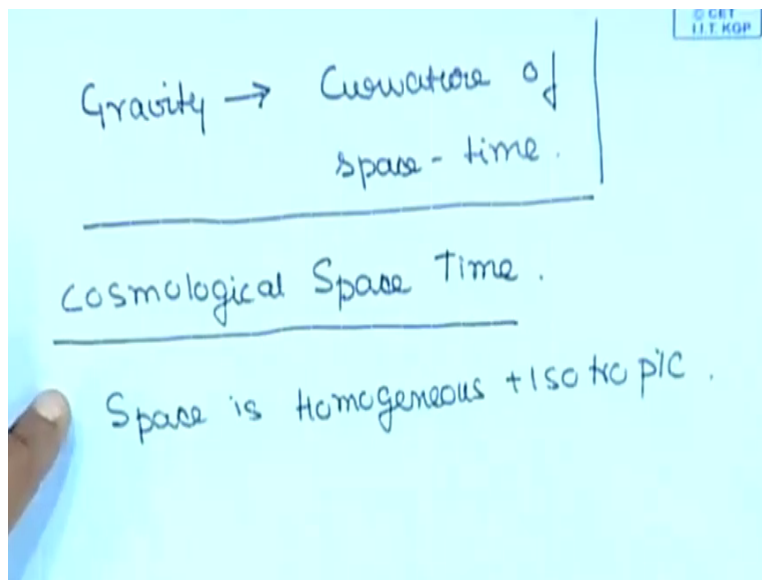 © CET
I.I.T. KGP
Gravity → Curvature of
space - time.
Cosmological Space Time.
Space is Homogeneous + Isotropic.